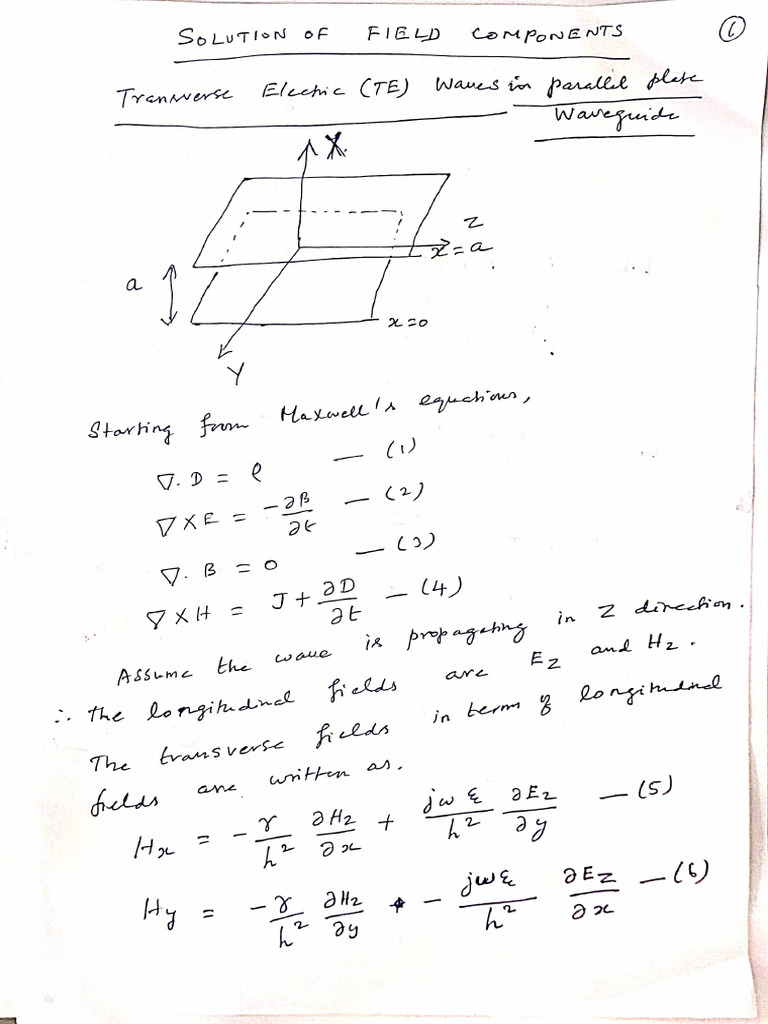 SOLUTION OF FIELD COMPONENTS
6
Transverse Electric (TE) Waves in parallel plate
Waveguide
X
Z
x=a
a
x=0
Y
Starting from Maxwell's equations,
∇. D = ρ — (1)
∇ X E = -∂B/∂t — (2)
∇. B = 0 — (3)
∇ X H = J + ∂D/∂t — (4)
Assume the wave is propagating in Z direction.
∴ the longitudinal fields are Ez and Hz.
The transverse fields in term of longitudinal
fields are written as.
Hx = -γ/h² ∂Hz/∂x + jωε/h² ∂Ez/∂y — (5)
Hy = -γ/h² ∂Hz/∂y - jωε/h² ∂Ez/∂x — (6)